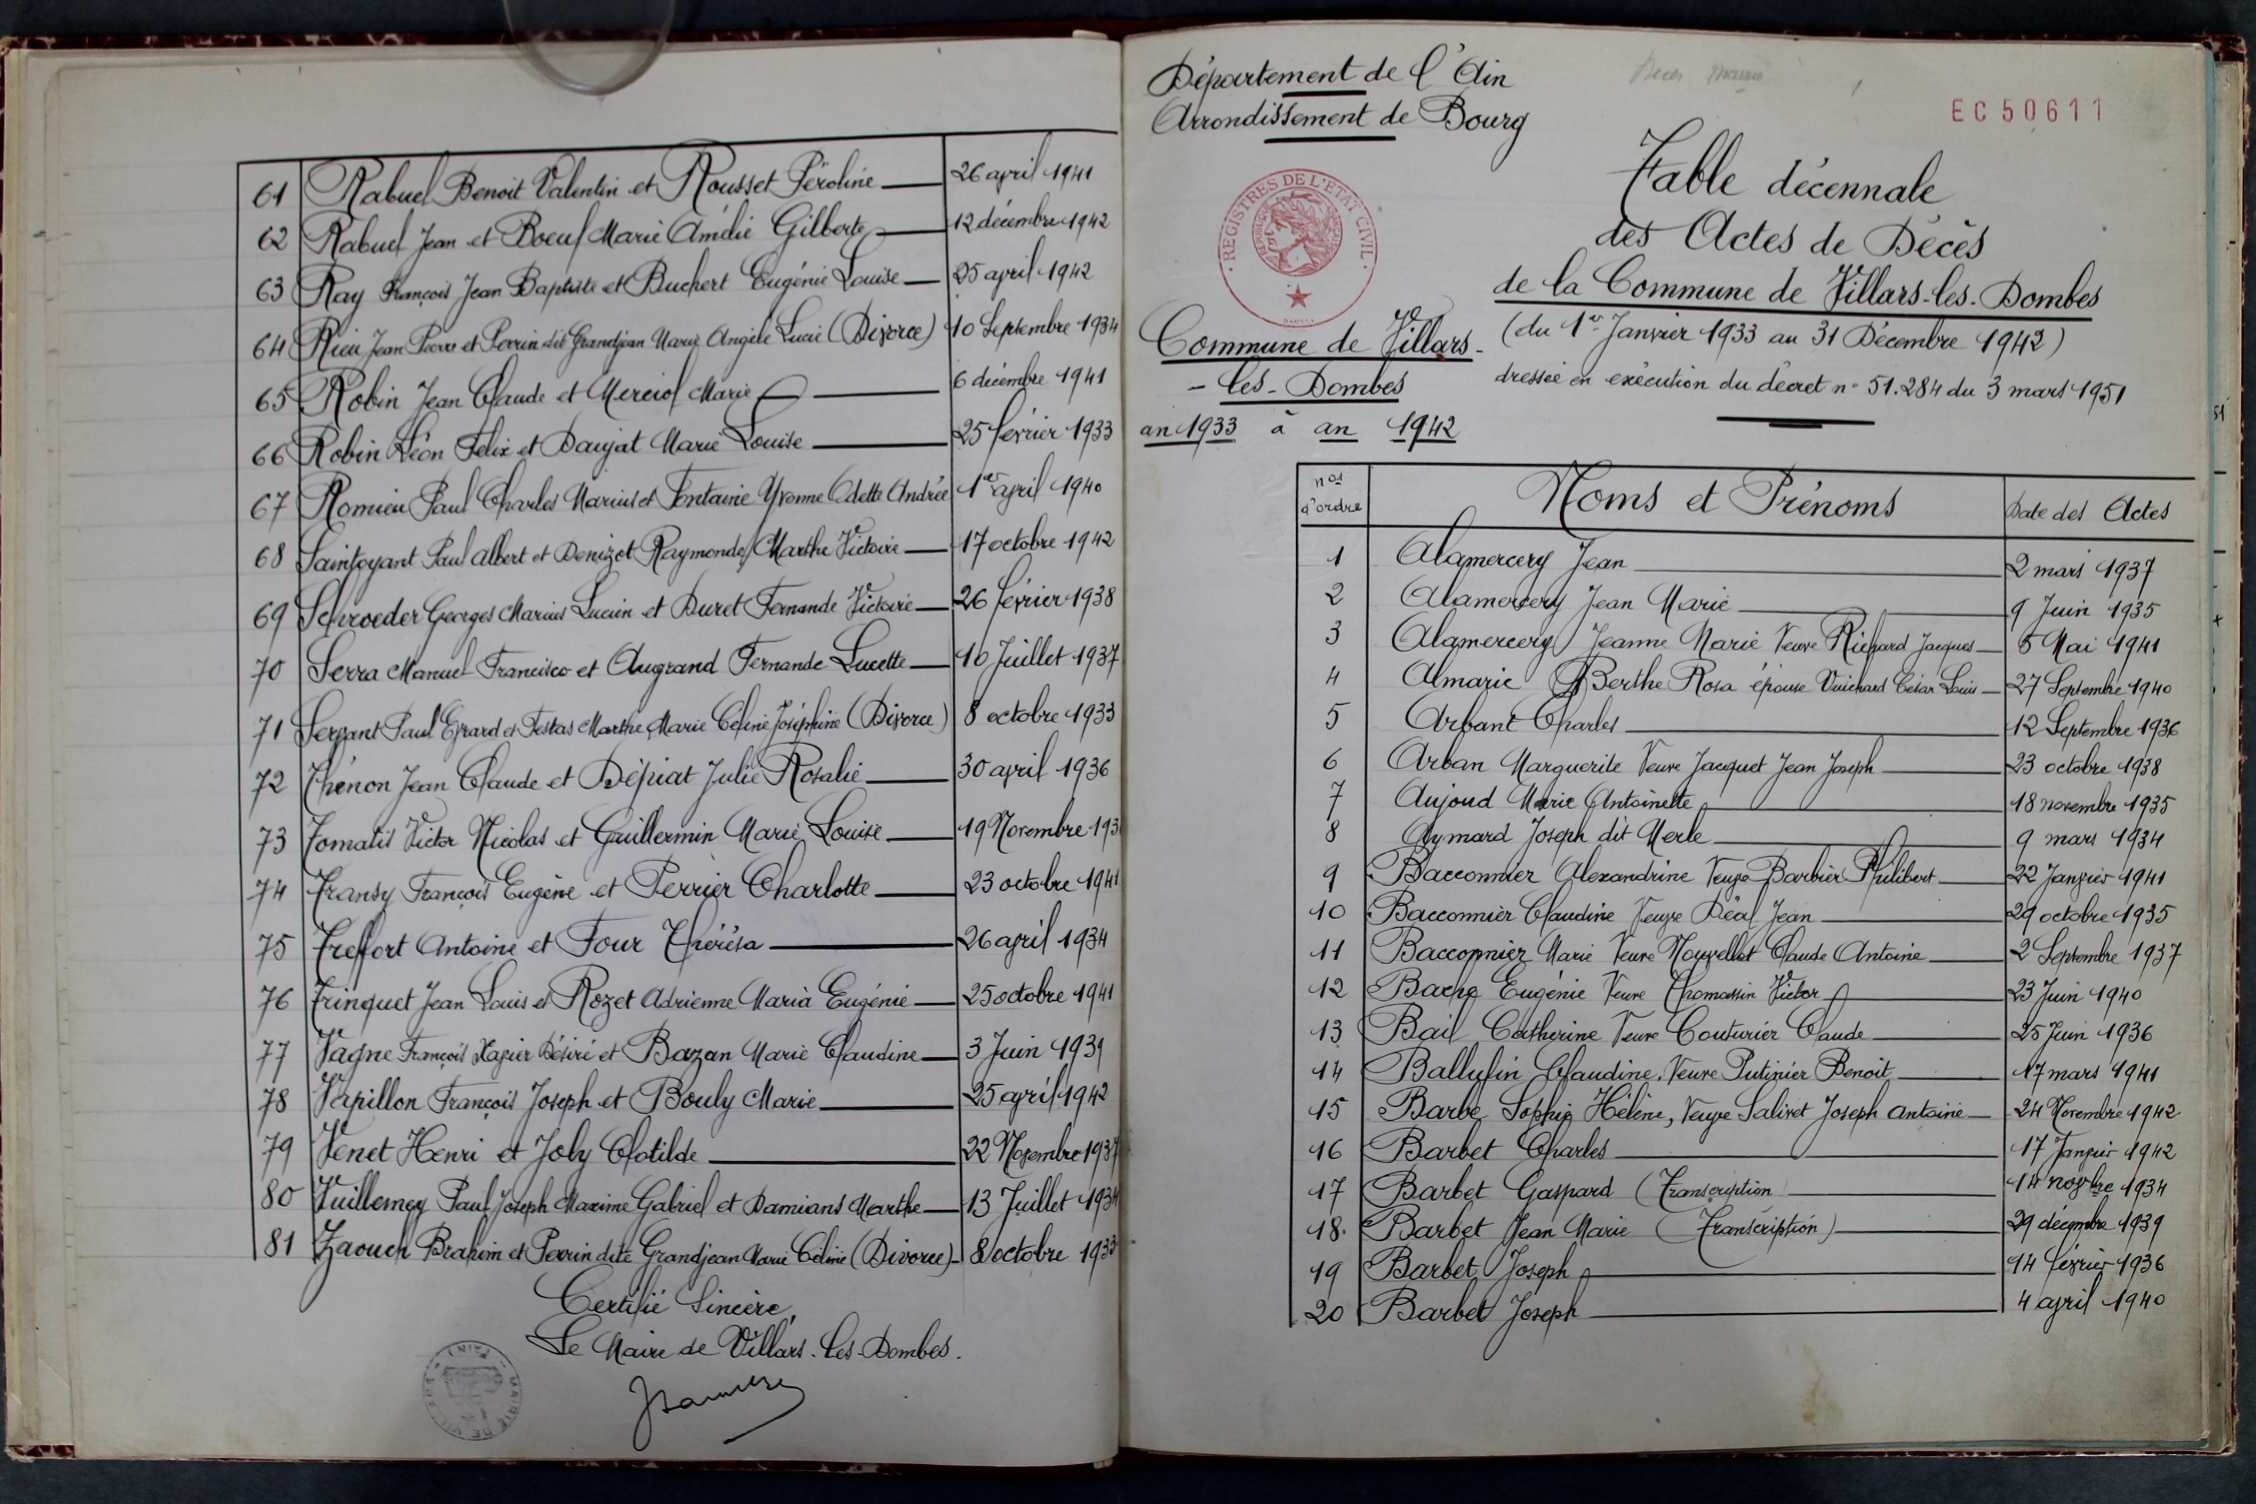 61 Rabuel Benoit Valentin et Rousset Péroline 26 avril 1941
62 Rabuel Jean et Boeuf Marie Amélie Gilberte 12 décembre 1942
63 Ray François Jean Baptiste et Buchert Eugénie Louise 25 avril 1942
64 Rieu Jean Pierre et Perrin dit Grandjean Marie Angèle Lucie (Divorce) 10 Septembre 1934
65 Robin Jean Claude et Merciol Marie 6 décembre 1941
66 Robin Léon Felix et Daujat Marie Louise 25 février 1933
67 Romieu Paul Charles Marius et Fontaine Yvonne Odette Andrée 1er avril 1940
68 Sainfoyant Paul Albert et Denizot Raymonde Marthe Victoire 17 octobre 1942
69 Schroeder Georges Marius Lucien et Duret Fernande Victoire 26 février 1938
70 Serra Manuel Francisco et Augrand Fernande Lucette 10 Juillet 1937
71 Servant Paul Evrard et Festas Marthe Marie Céline Joséphine (Divorce) 8 octobre 1933
72 Thénon Jean Claude et Dépiat Julie Rosalie 30 avril 1936
73 Tomatis Victor Nicolas et Guillermin Marie Louise 19 Novembre 193
74 Transy François Eugène et Perrier Charlotte 23 octobre 1941
75 Treffort Antoine et Four Thérésa 26 avril 1934
76 Trinquet Jean Louis et Rozet Adrienne Maria Eugénie 25 octobre 1941
77 Vagne François Xavier Désiré et Bazan Marie Claudine 3 Juin 1939
78 Verpillon François Joseph et Bouly Marie 25 avril 1942
79 Venet Henri et Joly Clotilde 22 Novembre 1937
80 Vuillemey Paul Joseph Maxime Gabriel et Damians Marthe 13 Juillet 1934
81 Zaouch Brahim et Perrin dite Grandjean Marie Céline (Divorce) 8 octobre 1933
Certifié Sincère,
Le Maire de Villars-les-Dombes.
Département de l'Ain
Arrondissement de Bourg
EC50611
REGISTRES DE L'ETAT CIVIL
Commune de Villars-
-les-Dombes
an 1933 à an 1942
Table décennale
des Actes de Décès
de la Commune de Villars-les-Dombes
(du 1er Janvier 1933 au 31 Décembre 1942)
dressée en exécution du décret n° 51.284 du 3 mars 1951
nos d'ordre Noms et Prénoms Date des Actes
1 Alamercery Jean 2 mars 1937
2 Alamercery Jean Marie 9 Juin 1935
3 Alamercery Jeanne Marie Veuve Richard Jacques 5 Mai 1941
4 Almaric Berthe Rosa épouse Vuichard César Louis 27 Septembre 1940
5 Arbant Charles 12 Septembre 1936
6 Arban Marguerite Veuve Jacquet Jean Joseph 23 octobre 1938
7 Aujoud Marie Antoinette 18 novembre 1935
8 Aymard Joseph dit Merle 9 mars 1934
9 Bacconnier Alexandrine Veuve Barbier Philibert 22 Janvier 1941
10 Bacconnier Claudine Veuve Déal Jean 29 octobre 1935
11 Bacconnier Marie Veuve Nouvellet Claude Antoine 2 Septembre 1937
12 Bache Eugénie Veuve Thomassin Victor 23 Juin 1940
13 Bail Catherine Veuve Couturier Claude 25 Juin 1936
14 Ballufin Claudine, Veuve Putinier Benoit 17 mars 1941
15 Barbe Sophie Hélène, Veuve Salivet Joseph Antoine 24 Novembre 1942
16 Barbet Charles 17 Janvier 1942
17 Barbet Gaspard (Transcription) 14 novbre 1934
18. Barbet Jean Marie (Transcription) 29 décembre 1939
19 Barbet Joseph 14 février 1936
20 Barbet Joseph 4 avril 1940